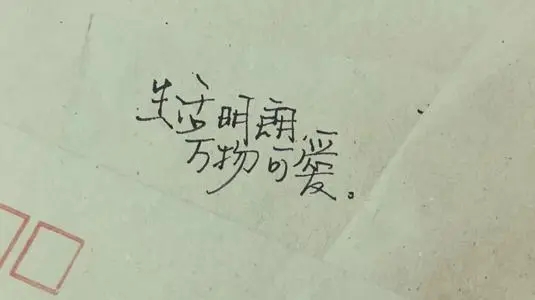 生活明朗
万物可爱。